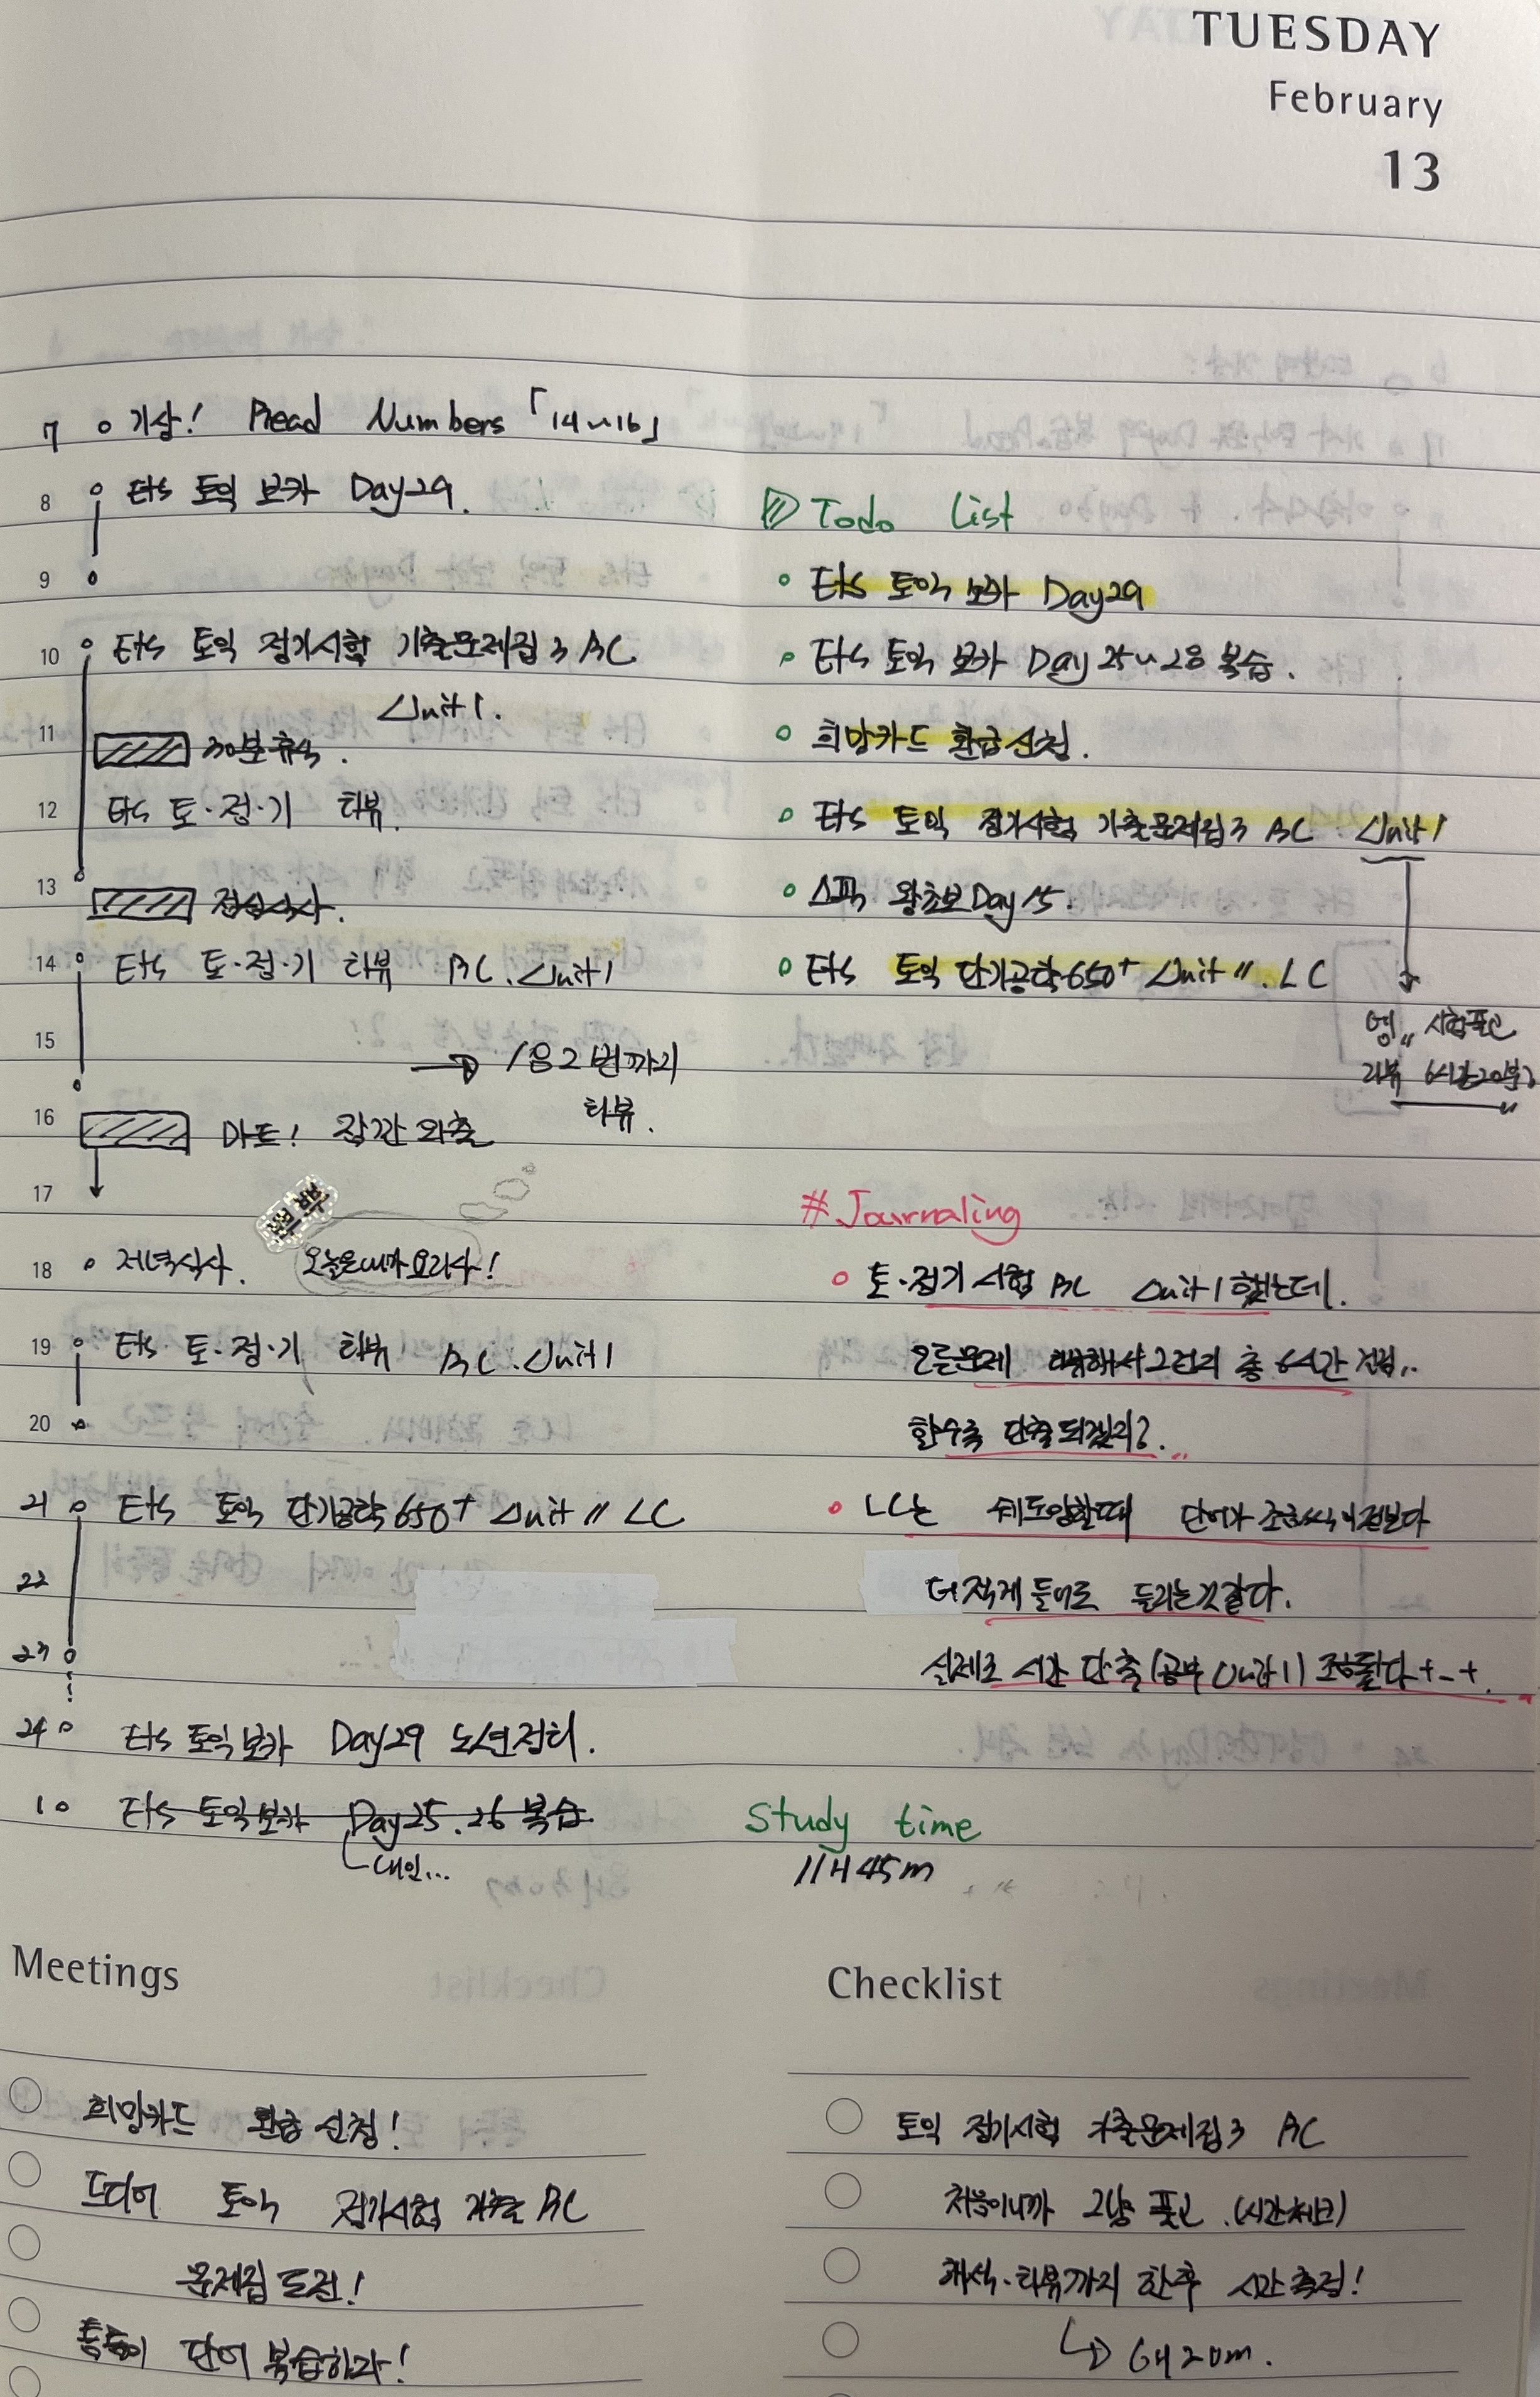 TUESDAY
February
13
7 기상! Read Numbers 「14~16」
8 Ets 토익 보카 Day29.
9
10 Ets 토익 정기시험 기출문제집3 RC
Unit1.
11 30분 휴식.
12 Ets 토·정·기 리뷰.
13 점심식사.
14 Ets 토·정·기 리뷰 RC. Unit1
15
→ 182번까지
리뷰.
16 마트! 잠깐 외출
17
18 저녁식사. 오늘은 내가 요리사!
19 Ets 토·정·기 리뷰 RC. Unit1
20
21 Ets 토익 단기공략 650+ Unit 11 LC
22
23
24 Ets 토익보카 Day29 노션정리.
1 Ets 토익보카 Day25.26 복습
내일...
Todo List
Ets 토익 보카 Day29
Ets 토익 보카 Day 25~28 복습.
희망카드 환급신청.
Ets 토익 정기시험 기출문제집3 RC Unit1
스픽 왕초보 Day15.
Ets 토익 단기공략 650+ Unit 11. LC
시험풀고
리뷰 6시간20분
# Journaling
토·정기 시험 RC Unit1 했는데.
모든문제 리뷰해서 그런지 총 6시간 걸림..
할수록 단축되겠지?..
LC는 쉐도잉할때 단어가 조금씩 이전보다
더 적게 들어도 들리는것 같다.
실제로 시간 단축(공부 Unit11) 조금됐다 +_+.
Study time
11H 45m
Meetings
희망카드 환급 신청!
드디어 토익 정기시험 기출 RC
문제집 도전!
틈틈이 단어 복습하자!
Checklist
토익 정기시험 기출문제집3 RC
처음이니까 그냥 풀고. (시간체크)
해석·리뷰까지 한후 시간측정!
↳ 6H 20m.